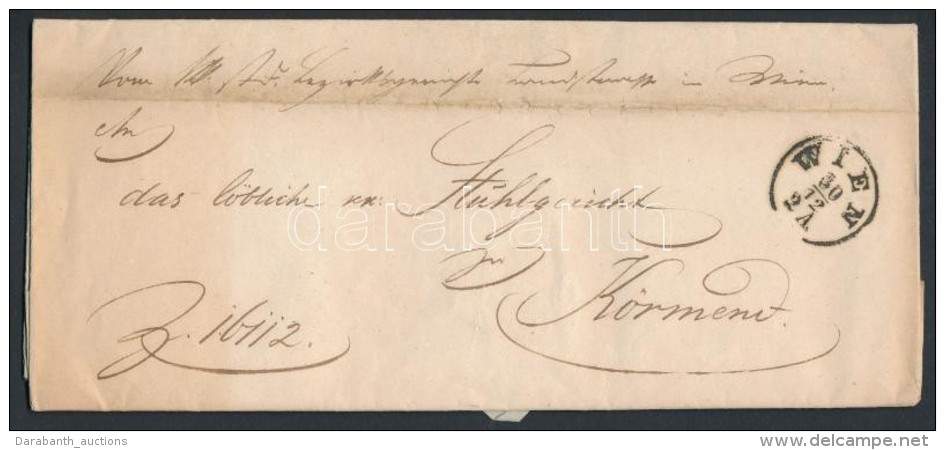 Vom kk. städ. Bezirksgerichte Landstrasse in Wien.
An
das löbliche kk: Stuhlgericht
zu
Körmend.
Z. 16112.
WIEN
30
12
2 A
darabanth
Darabanth_auctions
www.delcampe.net